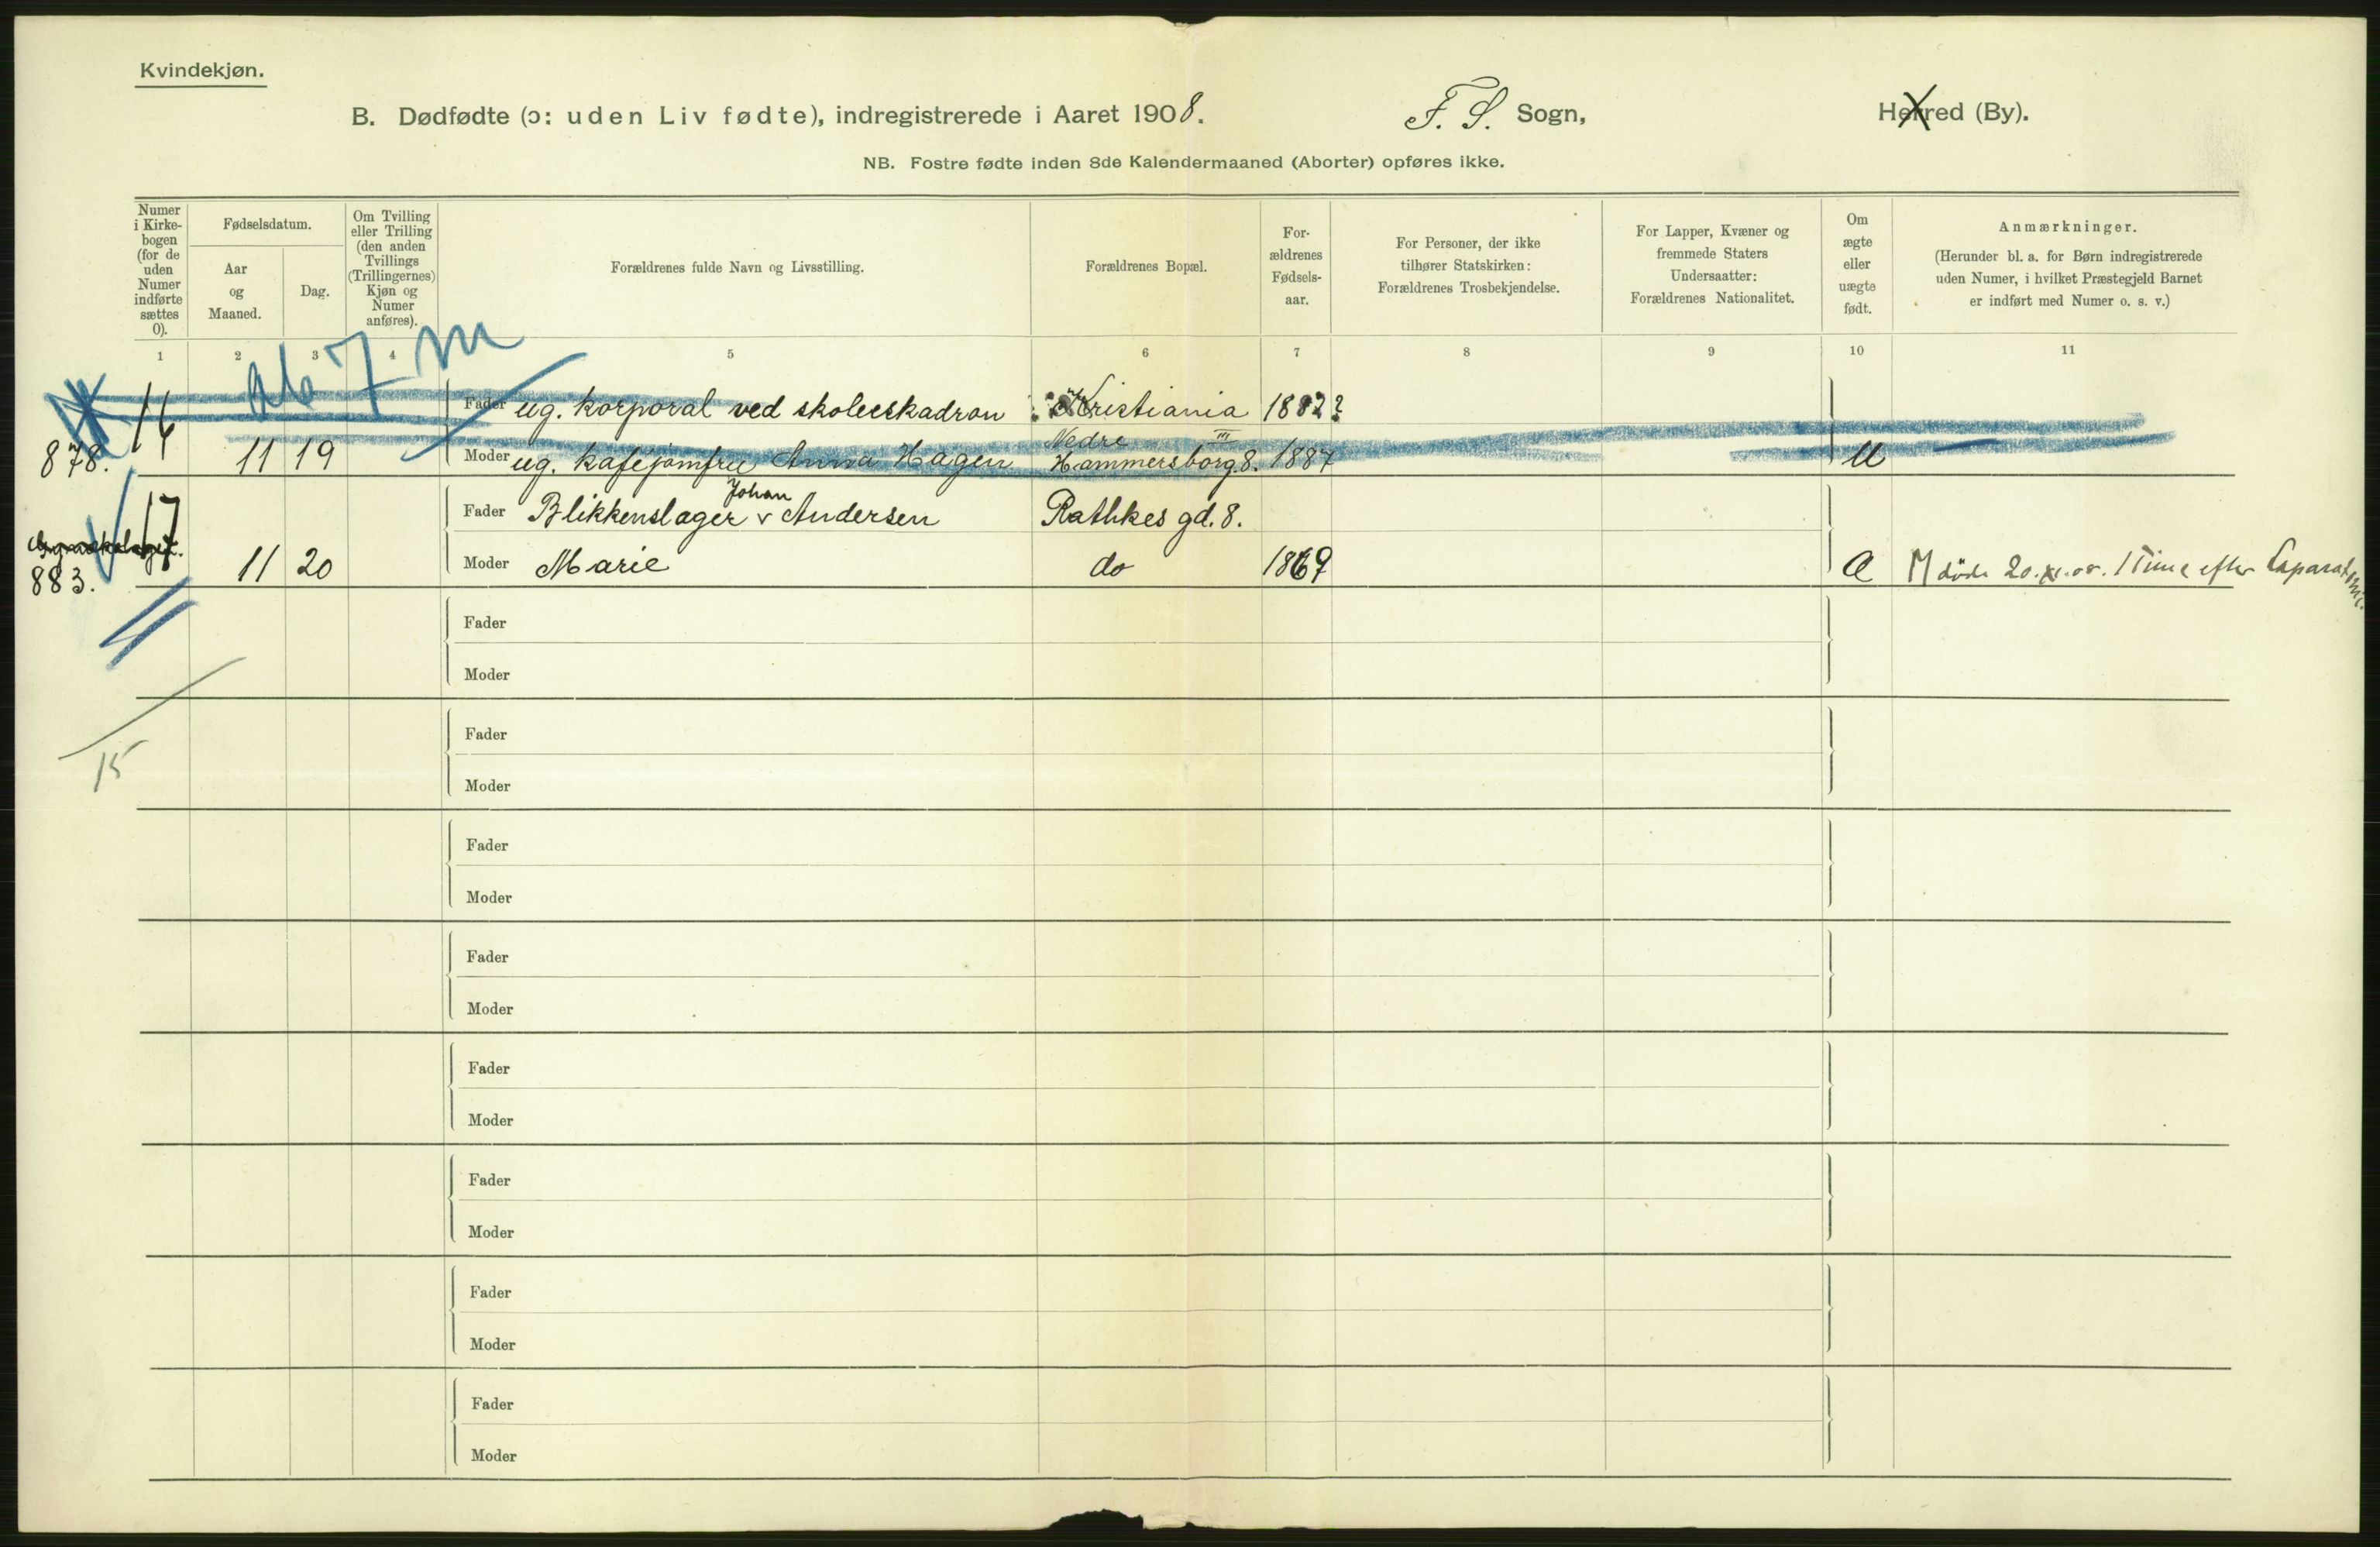 Kvindekjøn.
B. Dødfødte (ɔ: uden Liv fødte), indregistrerede i Aaret 1908.
F. S. Sogn,
Herred (By).
NB. Fostre fødte inden 8de Kalendermaaned (Aborter) opføres ikke.
Numer i Kirke-bogen (for de uden Numer indførte sættes 0).
Fødselsdatum.
Aar og Maaned.
Dag.
Om Tvilling eller Trilling (den anden Tvillings (Trillingernes) Kjøn og Numer anføres).
Forældrenes fulde Navn og Livsstilling.
Forældrenes Bopæl.
For-ældrenes Fødsels-aar.
For Personer, der ikke tilhører Statskirken: Forældrenes Trosbekjendelse.
For Lapper, Kvæner og fremmede Staters Undersaatter: Forældrenes Nationalitet.
Om ægte eller uægte født.
Anmærkninger.
(Herunder bl. a. for Børn indregistrerede uden Numer, i hvilket Præstegjeld Barnet er indført med Numer o. s. v.)
1 2 3 4 5 6 7 8 9 10 11
ab 7 m
16 Fader ug. korporal ved skoleeskadron Kristiania 1882?
Nedre III
878. 11 19 Moder ug. kaféjomfru Anna Hagen Hammersborg. 8. 1887 U
Johan
17 Fader Blikkenslager v Andersen Rathkes gd. 8.
883. 11 20 Moder Marie do 1869 M døde 20. XI. 08. 1 Time efter Laparatomi.
Fader
Moder
15
Fader
Moder
Fader
Moder
Fader
Moder
Fader
Moder
Fader
Moder
Fader
Moder
Fader
Moder